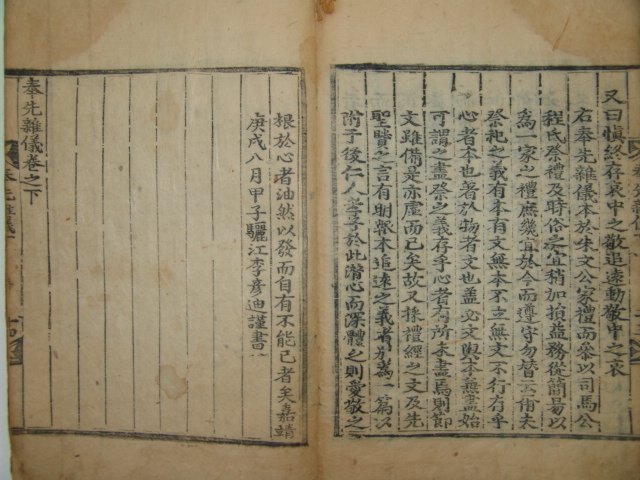 又曰愼終存哀中之敬追遠動敬中之哀
右奉先雜儀本於朱文公家禮而叅以司馬公
程氏祭禮及時俗之宜稍加損益務從簡易以
爲一家之禮庶幾宜於今而遵守勿替云尓夫
祭祀之義有本有文無本不立無文不行存乎
心者本也著於物者文也盖必文與本兼盡始
可謂之盡祭之義存乎心者有所未盡焉則節
文雖備是亦虛而已矣故又採禮經之文及先
聖賢之言有明報本追遠之義者別爲一篇以
附于後仁人孝子於此潛心而深體之則愛敬之
根於心者油然以發而自有不能已者矣嘉靖
庚戌八月甲子驪江李彦迪謹書
奉先雜儀卷之下